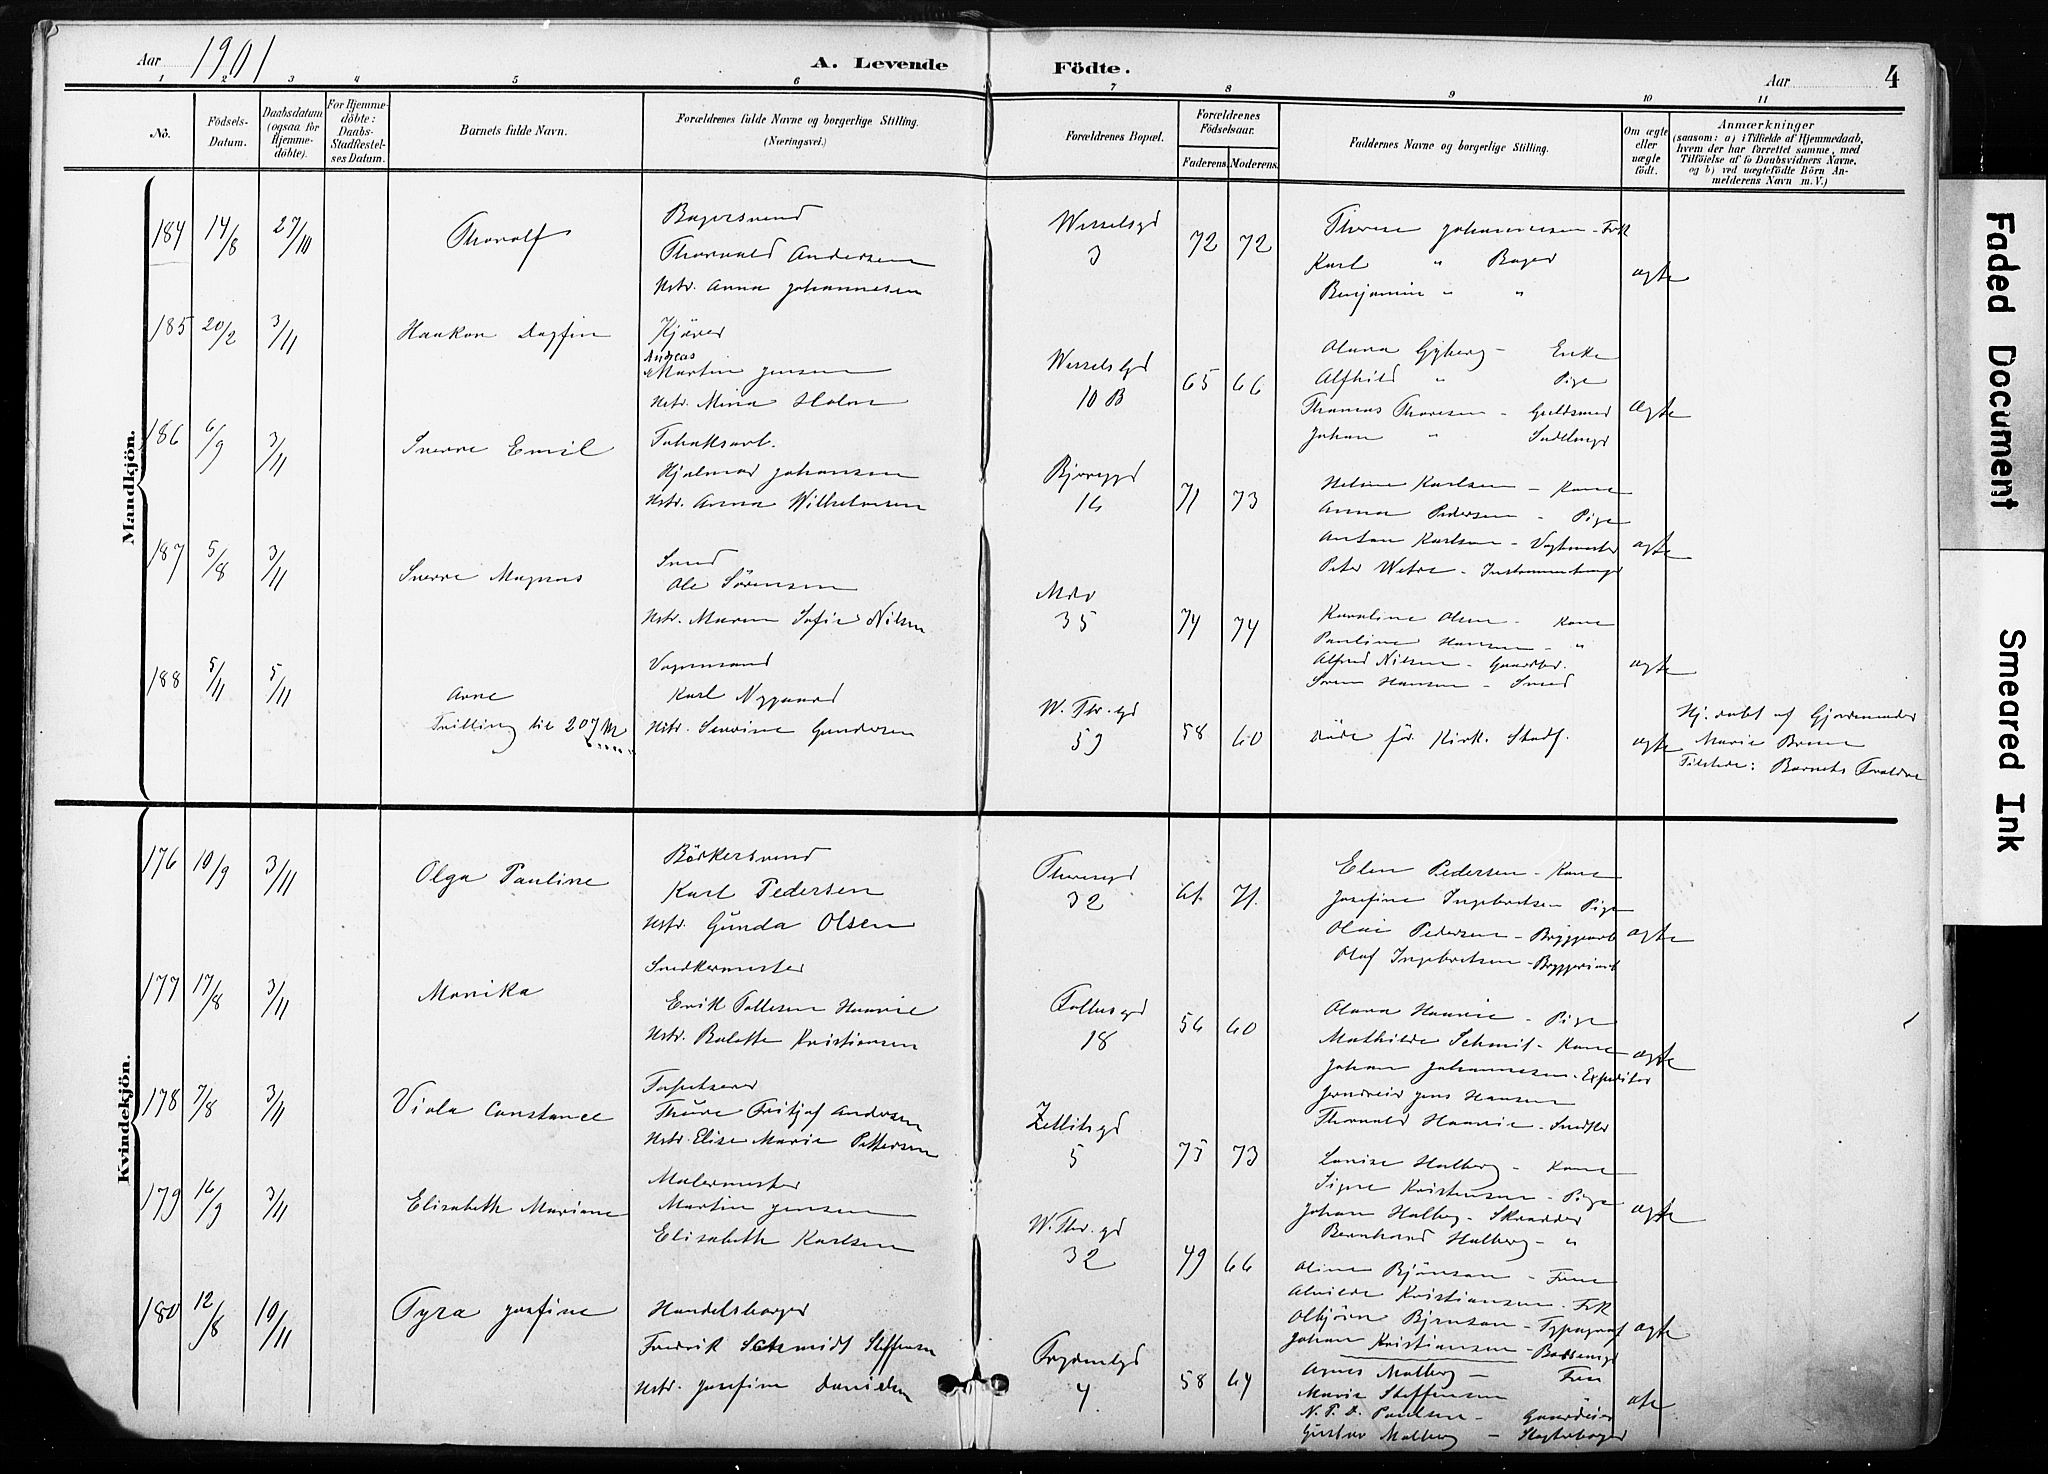 Aar 1901
A. Levende Födte.
Aar
4
1 2 3 4 5 6 7 8 9 10 11
Nô.
Födsels-Datum.
Daabsdatum (ogsaa for Hjemme-döbte).
For Hjemme-döbte: Daabs-Stadfæstel-ses Datum.
Barnets fulde Navn.
Forældrenes fulde Navne og borgerlige Stilling.
(Næringsvei.)
Forældrenes Bopæl.
Forældrenes Födselsaar.
Faderens. Moderens.
Faddernes Navne og borgerlige Stilling.
Om ægte eller uægte födt.
Anmærkninger
(saasom: a) i Tilfælde af Hjemmedaab, hvem der har forrettet samme, med Tilföielse af to Daabsvidners Navne, og b) ved uægtefödte Börn An-melderens Navn m. V.)
Mandkjön.
184 14/8 27/10 Thoralf
Bagersvend
Thorvald Andersen
Hstr. Anna Johannesen
Wesselsgd
3
72 72
Therese Johannesen - Frk
Karl " Bager
Benjamin " "
ægte
185 20/2 3/11 Haakon Dagfin
Kjører
Andreas
Martin Jensen
Hstr. Mina Holm
Wesselsgd
10 B
65 66
Olava Gyberg - Enke
Alfhild " Pige
Thomas Thoresen - Guldsmed
Johan "
ægte
186 6/9 3/11 Sverre Emil
Tobaksarb.
Hjalmar Johansen
Hstr. Anna Wilhelmsen
16
71 73
Helene Karlsen - Kone
Anna Pedersen - Pige
Anton Karlsen - Vagtmester
Peter Wetre -
ægte
187 5/8 3/11 Sverre Magnus
Smed
Ole Sørensen
Hstr. Maren Sofie Nilsen
35
74 74
Karoline Olsen - Kone
Pauline Hansen - "
Alfred Nilsen - Gaardbr.
Søren Hansen - Smed
ægte
188 5/11 5/11 Arne
Tvilling til 207
Vognmand
Karl Nygaard
Hstr. Severine Gundersen
W. Thr. gd
59
58 60
døde før Kirk. Stadf.
ægte
Hj. døbt af Gjordemoder
Marie Bruun
Tilstede: Barnets Forældre
Kvindekjön.
176 10/9 3/11 Olga Pauline
Bødkersvend
Karl Pedersen
Hstr. Gunda Olsen
Theresgd
32
61. 71.
Elen Pedersen - Kone
Josefine Ingebretsen Pige
Olai Pedersen - Bryggearb
Olaf Ingebretsen - Bryggeriarb
ægte
177 17/8 3/11 Monika
Snedkermester
Erik Tollefsen Haavie
Hstr. Bolette Kristiansen
Falbesgd
18
56 60
Olava Haavie - Pige
Mathilde Schmit - Kone
Johan Johannesen - Expeditør
Jens Hansen
Thorvald Haavie - Snedker
ægte
178 7/8 3/11 Viola Constance
Tapetserer
Thure Fritjof Andersen
Hstr. Elise Marie Pettersen
Zetlitsgd
5
75 73
Lovise Halberg - Kone
Signe Kristensen - Pige
Johan Halberg - Skrædder
Bernhard Halberg - "
ægte
179 16/9 3/11 Elisabeth Mariane
Malermester
Martin Jensen
Elisabeth Karlsen
W. Thr. gd
32
49 66
Oline Bjørnson - Frue
Alvilde Kristiansen - Frk
Olbjørn Bjørnson - Typograf
Johan Kristiansen -
ægte
180 12/8 10/11 Tyra Josefine
Handelsborger
Fredrik Schmidt Steffensen
Hstr. Josefine Danielsen
Frydenlgd
4
58 64
Agnes Malberg - Frue
Marie Steffensen "
N. P. D. Paulsen - Gaardeier
Gustav Malberg - Slagterborger
ægte
Faded Document
Smeared Ink